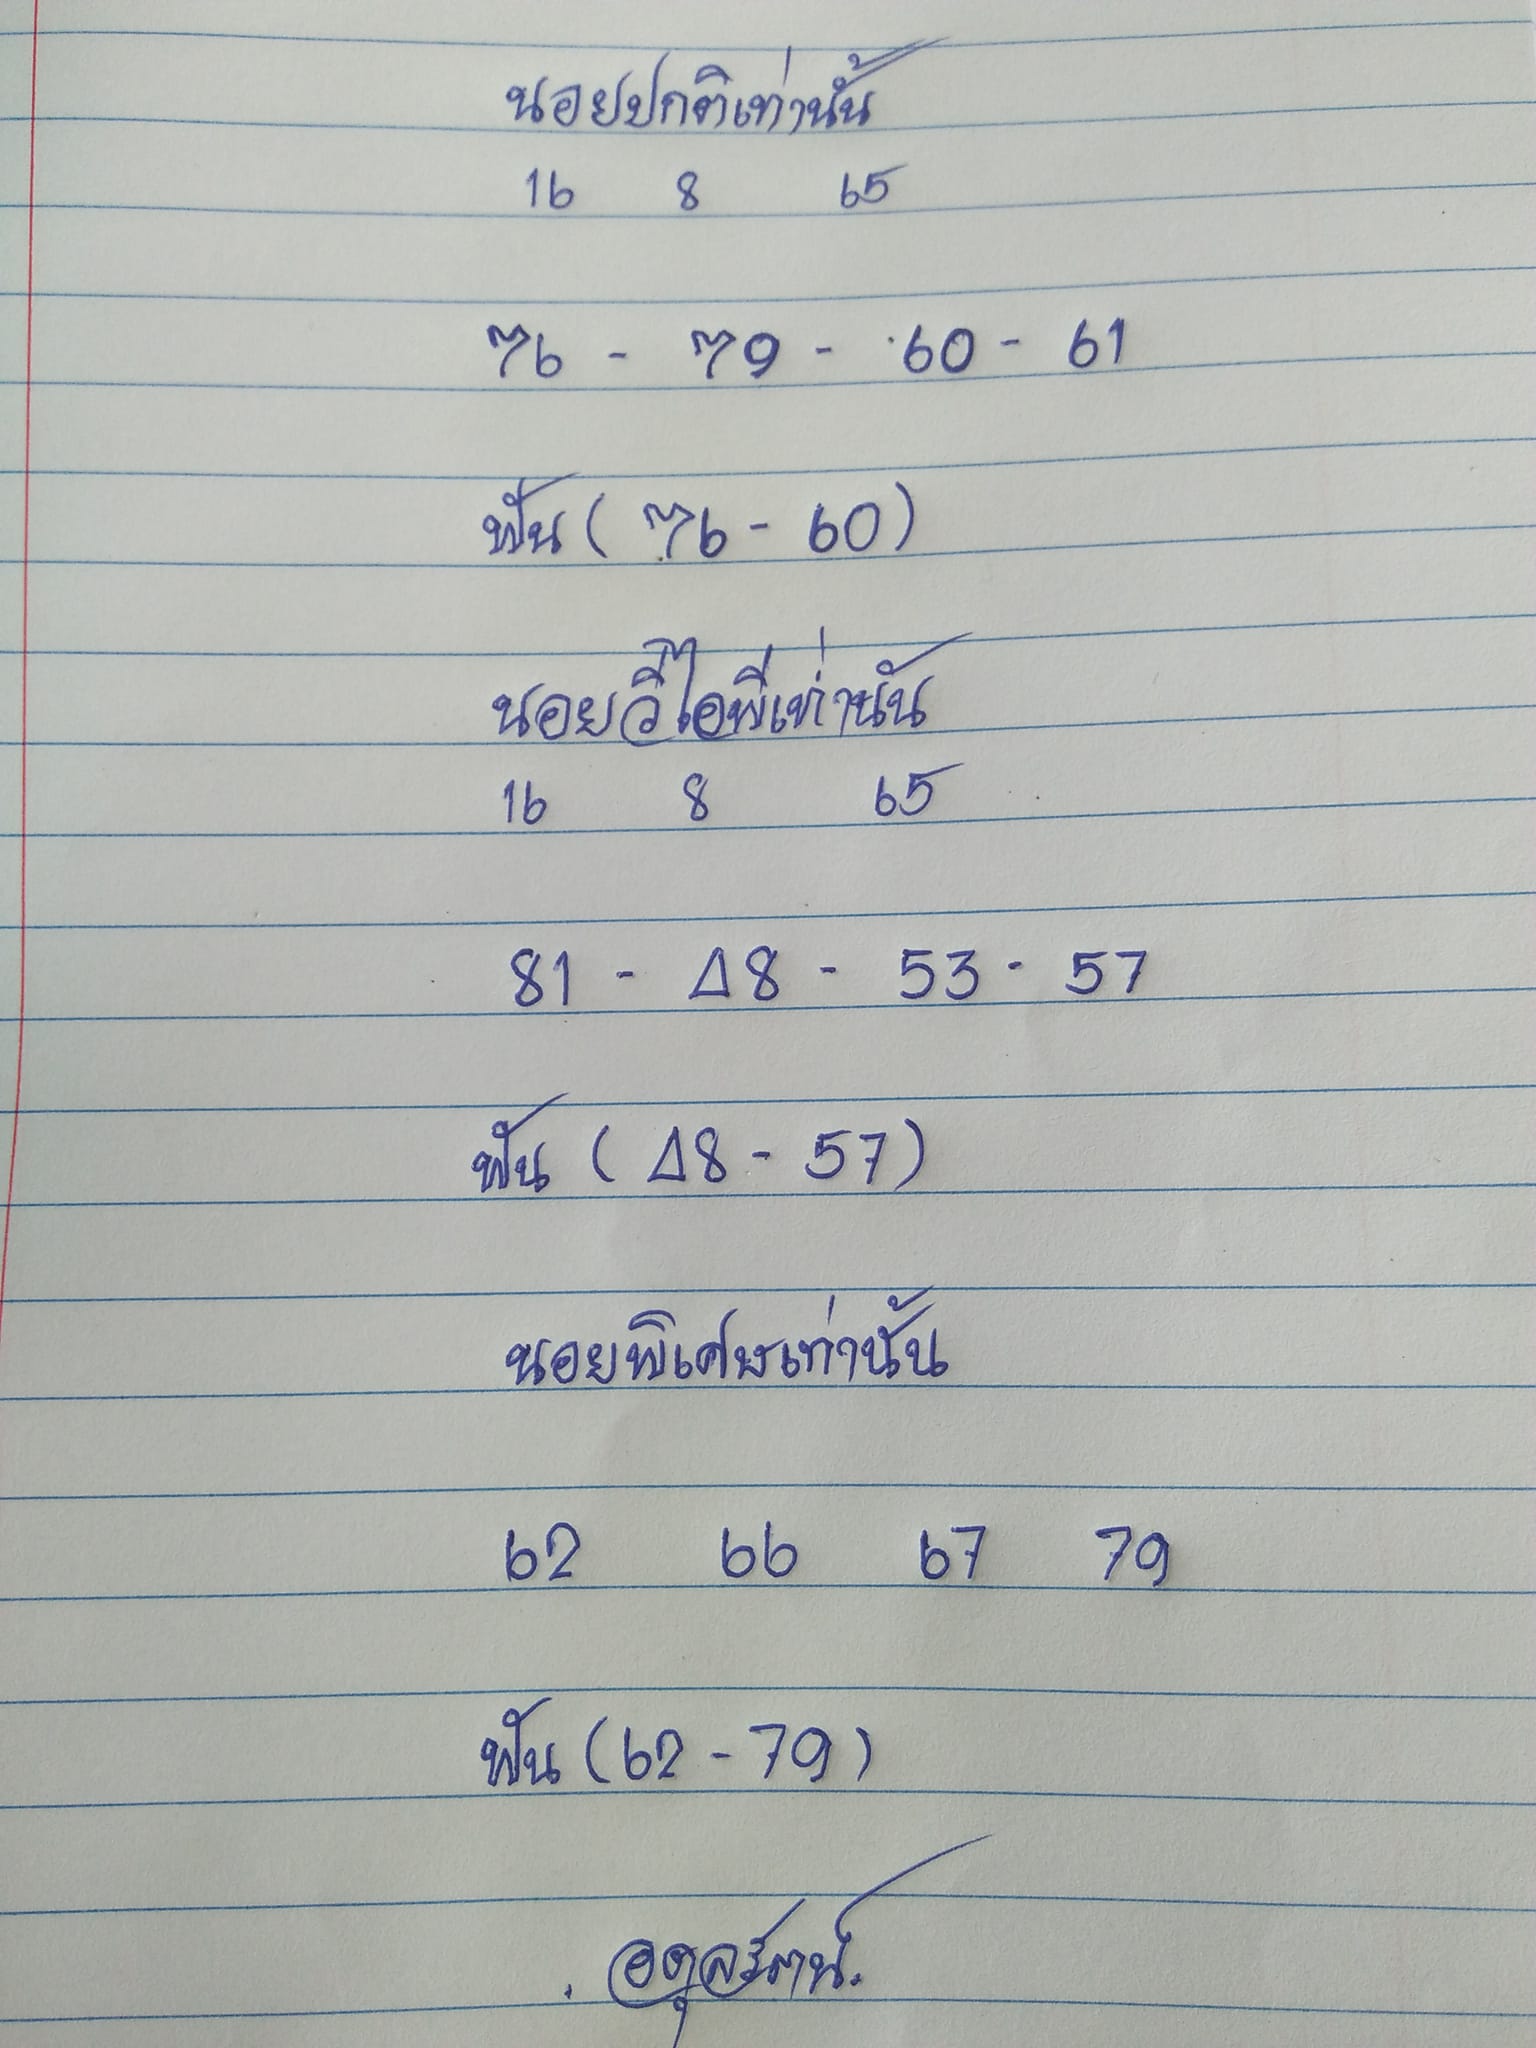 นอยปกติเท่านั้น
16 8 65
76 - 79 - 60 - 61
ฟัน ( 76 - 60 )
นอยวีไอพีเท่านั้น
16 8 65
81 - 48 - 53 - 57
ฟัน ( 48 - 57 )
นอยพิเศษเท่านั้น
62 66 67 79
ฟัน ( 62 - 79 )
อดุลรัตน์